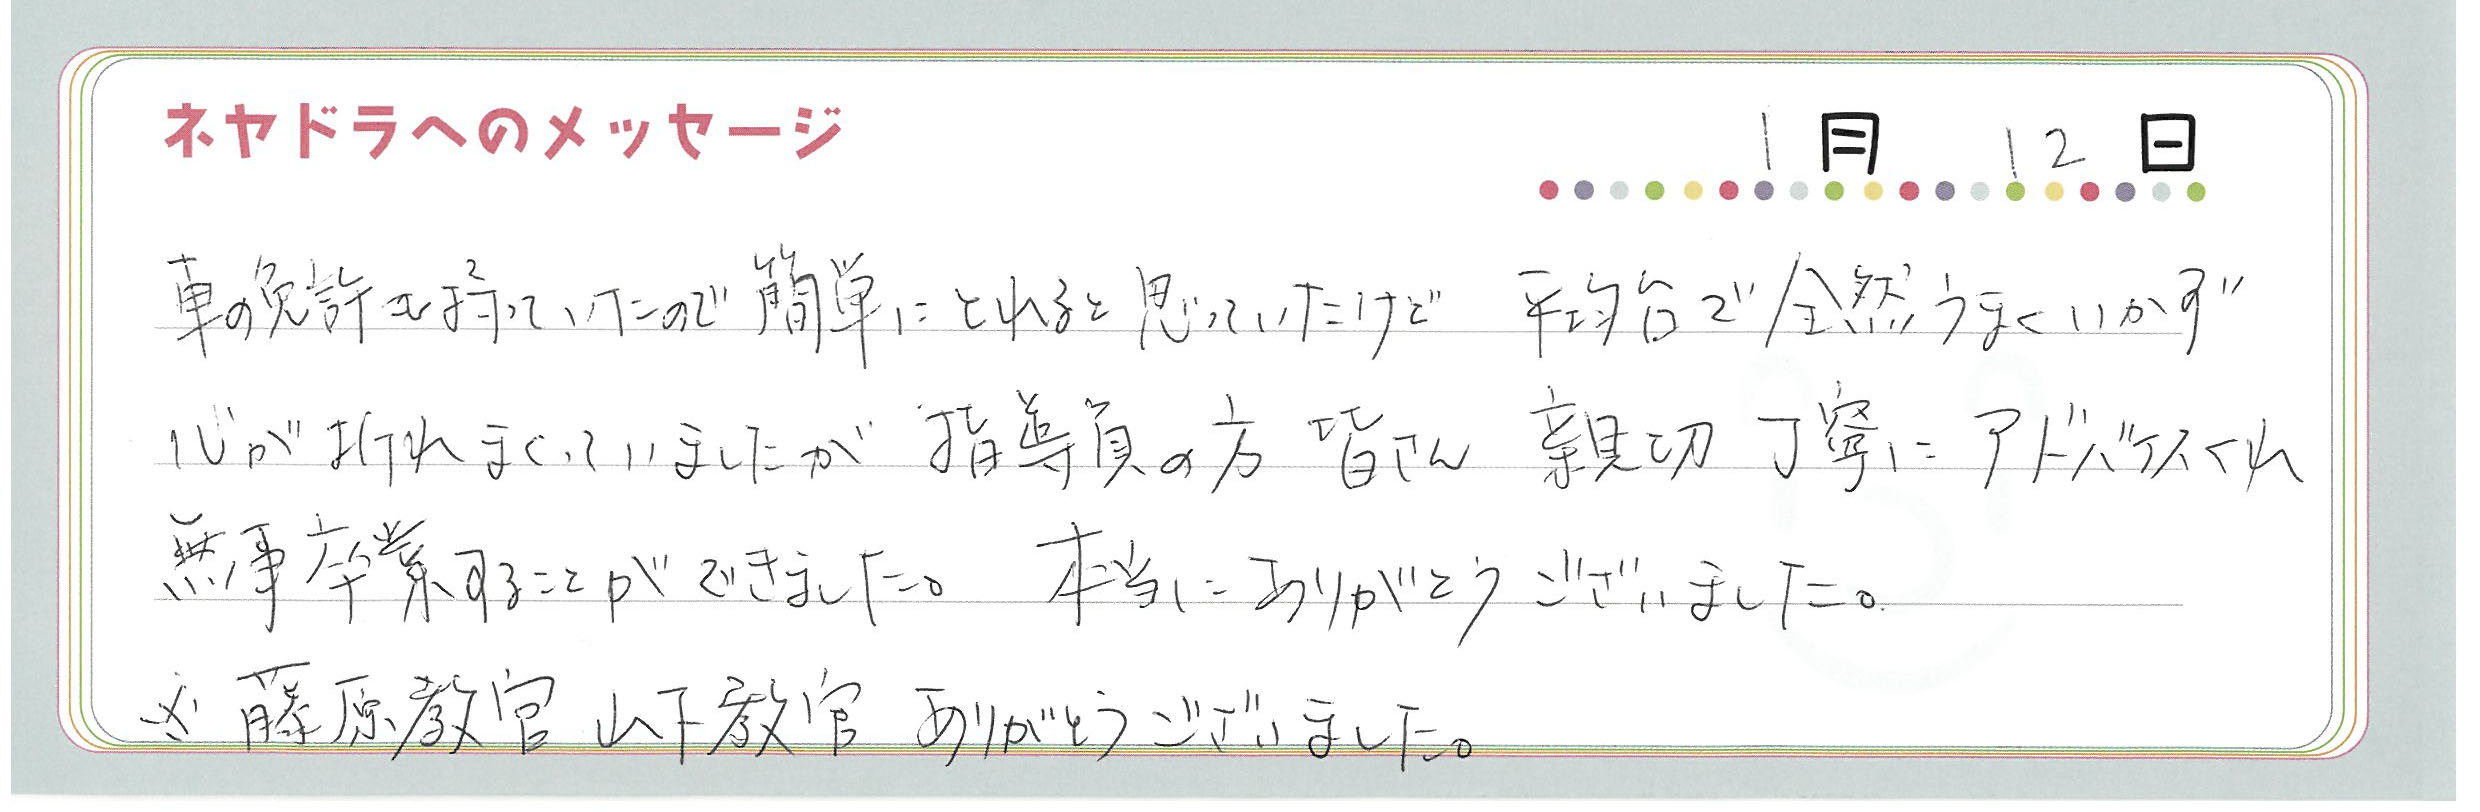 ネヤドラへのメッセージ
1月 12日
車の免許を持っていたので簡単にとれると思っていたけど 平均台で全然うまくいかず
心が折れまくっていましたが 指導員の方 皆さん 親切 丁寧に アドバイスくれ
無事卒業することができました。 本当にありがとうございました。
※ 藤原教官 山下教官 ありがとうございました。